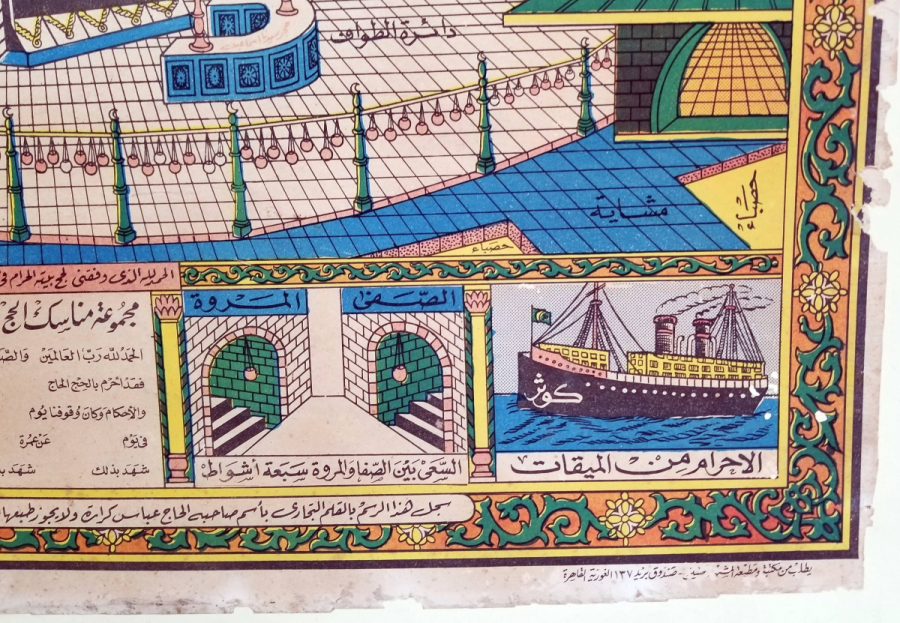 دائرة الطواف
حصباء
مشاية
حصباء
الحمد لله الذى وفقنى لحج بيته الحرام
المروة
الصفى
مجموعة مناسك الحج
الحمد لله رب العالمين
فقد أحرم بالحج الحاج
والأحكام وكان وقوفنا يوم
فى يوم عن عمرة
شهد بذلك شهد
كوثر
السعى بين الصفا والمروة سبعة أشواط
الاحرام من الميقات
سجل هذا الرسم بالقلم التجارى بأسم صاحبه الحاج عباس كرارة ولا يجوز طبعها
يطلب من مكتبة ومطبعة صندوق بريد ١٣٧ الغورية القاهرة